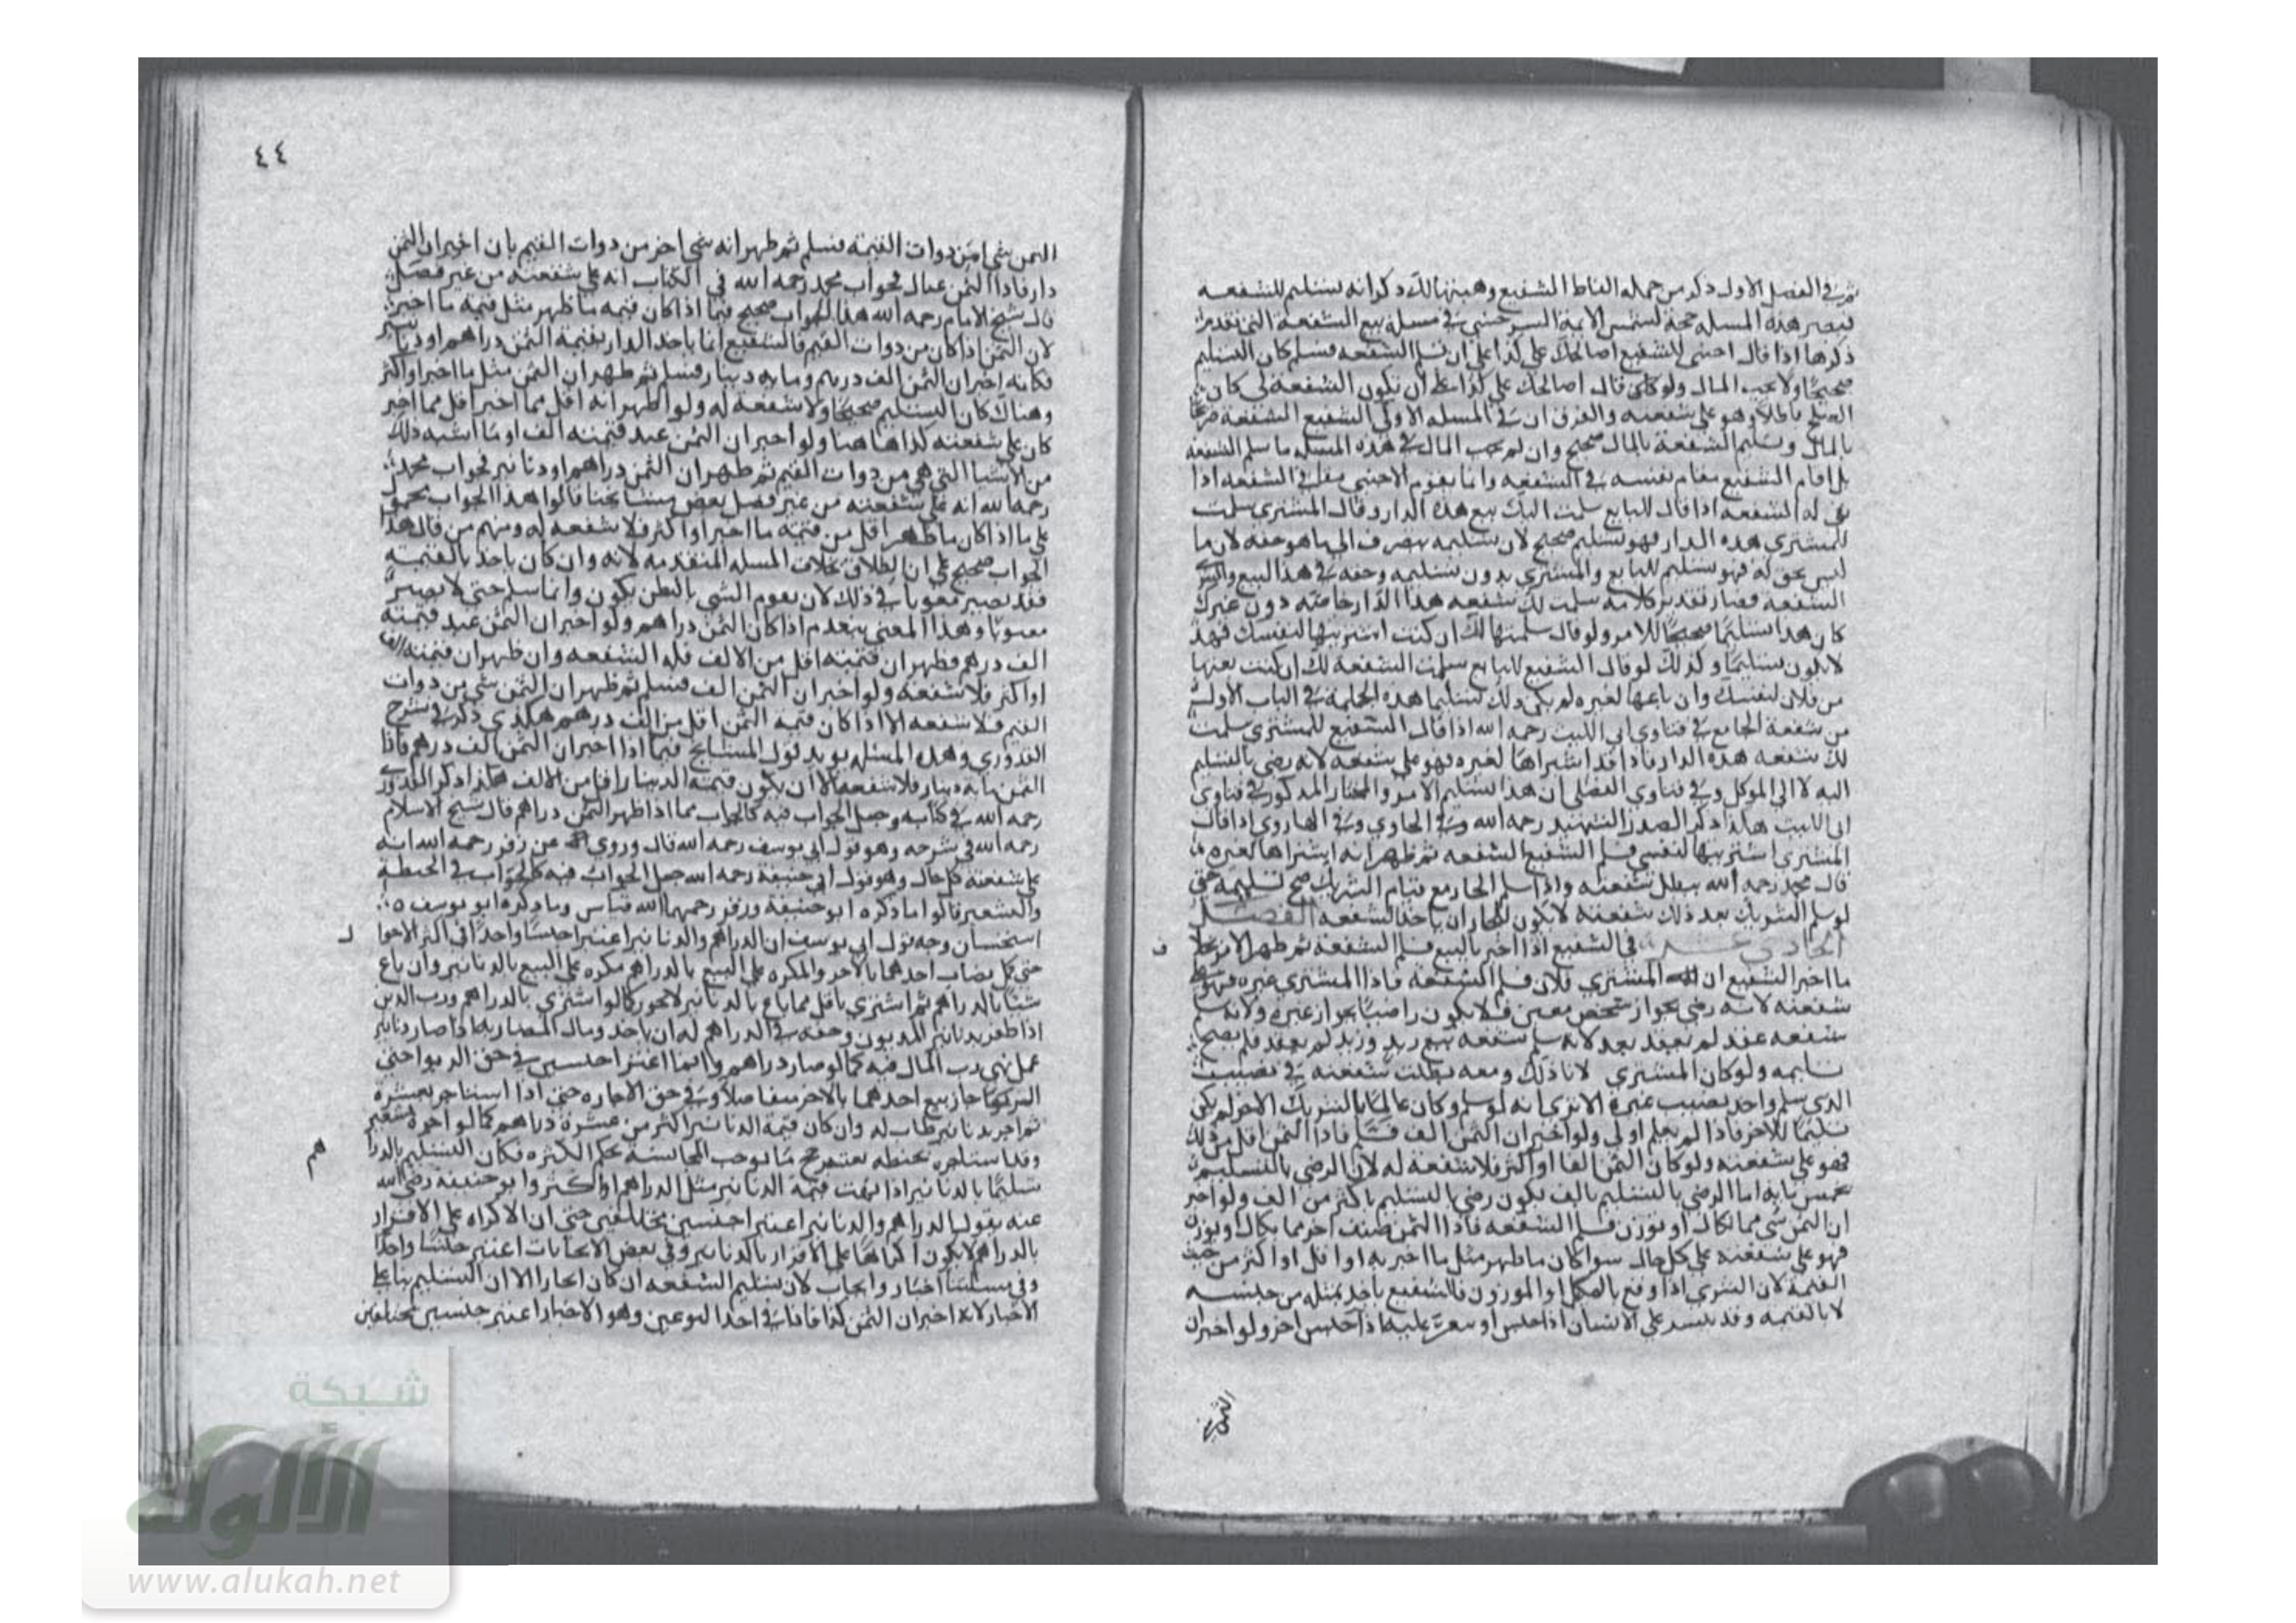 ثم في الفصل الاول ذكر من جمله الفاظ الشفيع وهبتها لك ذكر انه تسليم للشفعه
فيصير هذه المسله حجة لشمس الايمة السرخسي في مسلة بيع الشفعة التي تقدم
ذكرها اذا قال اجنبي للشفيع اصالحك على كذا على ان تسلم الشفعه فسلم كان التسليم
صحيحا ولا يجب المال ولو كان قال اصالحك على كذا على ان تكون الشفعة لي كان
الصلح باطلا وهو على شفعته والفرق ان في المسله الاولى الشفيع الشفعة
بالمال وتسليم الشفعة بالمال صحيح وان لم يجب المال في هذه المسله ما سلم الشفعه
بل اقام الشفيع مقام نفسه في الشفعه وانما يقوم الاجنبي في الشفعه اذا
له الشفعه اذا قال للبايع سلمت اليك بيع هذه الدار وقال المشتري سلمت
للمشتري هذه الدار فهو تسليم صحيح لان تسليمه يصرف الى ما هو حقه لان ما
ليس بحق له فهو تسليم للبايع والمشتري بدون تسليمه وحقه في هذا البيع
الشفعه فصار تقدير كلامه سلمت لك شفعه هذا الدار خاصة دون غيرك
كان هذا تسليما صحيحا للامر ولو قال سلمتها لك ان كنت اشتريتها لنفسك فهذا
لا يكون تسليما وكذلك لو قال الشفيع للبايع سلمت الشفعة لك ان كنت بعتها
من فلان لنفسك وان باعها لغيره لم يكن ذلك تسليما هذه الجملة في الباب الاول
من شفعة الجامع في فتاوى ابي الليث رحمه الله اذا قال الشفيع للمشتري سلمت
لك شفعه هذه الدار فاذا قد اشتراها لغيره فهو على شفعه لانه رضي بالتسليم
اليه لا الى الموكل وفي فتاوي الفضلي ان هذا تسليم الامر والمختار المذكور في فتاوي
ابي الليث هكذا ذكر الصدر الشهيد رحمه الله وفي الحاوي وفي الهاروني اذا قال
المشتري اشتريتها لنفسي فسلم الشفيع الشفعه ثم ظهر انه اشتراها لغيره
قال محمد رحمه الله يبطل شفعته واذا سلم الجار مع قيام الشريك صح تسليمه حتى
لو سلم الشريك بعد ذلك شفعته لا يكون للجار ان ياخذ الشفعه الفصل
الحادي عشر في الشفيع اذا اخبر بالبيع فسلم الشفعة ثم ظهر الامر بخلاف ف
ما اخبر الشفيع ان المشتري فلان فسلم الشفعة فاذا المشتري غيره فهو على
شفعته لانه رضي بجوار شخص معين فلا يكون راضيا بجوار غيره ولانه سلم
شفعه عقد لم يعقد بعد لانه سلم شفعه بيع زيد وزيد لم يعقد فلم يصح
تسليمه ولو كان المشتري لانا ذلك ومعه بطلت شفعته في نصيب
الذي سلم واخذ نصيب غيره الا ترى انه لو سلم وكان عالما بالشريك الاخر لم يكن
تسليما للاخر فاذا لم يعلم اولى ولو اخبر ان الثمن الف فسلم فاذا الثمن اقل من ذلك
فهو على شفعته ولو كان الثمن الفا او اكثر فلا شفعة له لان الرضى بالتسليم
بخمس مايه اما الرضى بالتسليم بالف يكون رضى بالتسليم باكثر من الف ولو اخبر
ان الثمن شي مما يكال او يوزن فسلم الشفعه فاذا الثمن صنف اخر مما يكال او يوزن
فهو على شفعته على كل حال سوا كان ما ظهر مثل ما اخبر به او اقل او اكثر من حيث
القيمة لان الشرى اذا وقع بالمكيل او الموزون فالشفيع ياخذ بمثله من جنسه
لا بالقيمه وقد يتيسر على الانسان اذا جنس او يتعسر عليه اذا جنس اخر ولو اخبر ان
الثمن شي
٤٤
الثمن شي من ذوات القيمة فسلم ثم ظهر انه شي اخر من ذوات القيم بان اخبر ان الثمن
دار فاذا الثمن عبد فجواب محمد رحمه الله في الكتاب انه على شفعته من غير فصل
قال شيخ الامام رحمه الله هذا الجواب صحيح فيما اذا كان قيمه ما ظهر مثل قيمه ما اخبر
لان الثمن اذا كان من ذوات القيم فالشفيع انما ياخذ الدار بقيمة الثمن دراهم او دنانير
فكانه اخبر ان الثمن الف درهم وماية دينار فسلم ثم ظهر ان الثمن مثل ما اخبر او اكثر
وهناك كان التسليم صحيحا ولا شفعة له ولو اظهر انه اقل مما اخبر اقل مما اخبر
كان على شفعته كذا هاهنا ولو اخبر ان الثمن عبد قيمته الف او ما اشبه ذلك
من الاشيا التي هي من ذوات القيم ثم ظهر ان الثمن دراهم او دنانير فجواب محمد
رحمه الله انه على شفعته من غير فصل بعض مشايخنا قالوا هذا الجواب محمول
على ما اذا كان ما ظهر اقل من قيمه ما اخبر او اكثر فلا شفعه له ومنهم من قال هذا
الجواب صحيح على ان الاطلاق بخلاف المسله المتقدمه لانه وان كان ياخذ بالقيمة
فقد يصير مغبونا في ذلك لان يقوم الشي بالظن يكون وانما سلم حتى لا يصير
مغبونا وهذا المعنى ينعدم اذا كان الثمن دراهم ولو اخبر ان الثمن عبد قيمته
الف درهم فظهر ان قيمته اقل من الالف فله الشفعه وان ظهر ان قيمته الف
او اكثر فلا شفعة ولو اخبر ان الثمن الف فسلم ثم ظهر ان الثمن شي من ذوات
القيم فلا شفعه الا اذا كان قيمة الثمن اقل من الف درهم هكذى ذكر في شرح
القدوري وهذه المسئله يويد لقول المشايخ فيما اذا اخبر ان الثمن الف درهم فاذا
الثمن مايه دينار فلا شفعه الا ان يكون قيمته الدينار اقل من الالف هكذا ذكر القدوري
رحمه الله في كتابه وجعل الجواب فيه كالجواب مما اذا ظهر الثمن دراهم قال شيخ الاسلام
رحمه الله في شرحه وهو قول ابي يوسف رحمه الله قال وروي عن زفر رحمه الله انه
على شفعته كل حال وهو قول ابي حنيفة رحمه الله جعل الجواب فيه كالجواب في الحنطة
والشعير قالوا ما ذكره ابو حنيفة وزفر رحمهما الله قياس وما ذكره ابو يوسف
استحسان وجه قول ابي يوسف ان الدراهم والدنانير اعتبرا جنسا واحدا في اكثر الاحوا ل
حتى كل نصاب احدهما بالاخر والمكره على البيع بالدراهم مكره على البيع بالدنانير وان باع
شيا بالدراهم ثم اشترى باقل مما باع بالدنانير لا يجوز كما لو اشترى بالدراهم ورب الدين
اذا ظفر بدنانير المديون وحقه في الدراهم له ان ياخذ ومال المضاربه اذا صار دنانير
عمل نهي رب المال فيه كما لو صار دراهم وانما اعتبرا جنسين في حق الربوا حتى
جاز بيع احدهما بالاخر متفاضلا وفي حق الاجاره حتى اذا استاجر بعشرة
ثم اجر بدنانير طاب له وان كان قيمة الدنانير اكثر من عشرة دراهم كما لو اجره
وقد استاجره بحنطه فنرجح ما يوجب المجانسة بحكم الكثره فكان التسليم بالدرا هم
تسليما بالدنانير اذا بلغت قيمة الدنانير مثل الدراهم او اكثر وابو حنيفة رضي الله
عنه يقول الدراهم والدنانير اعتبرا جنسين مختلفين حتى ان الاكراه على الاقرار
بالدراهم لا يكون اكراها على الاقرار بالدنانير وفي بعض الايجابات اعتبر جنسا واحدا
وفي مسئلتنا اخبار وايجاب لان تسليم الشفعه ان كان ايجارا الا ان التسليم بنا على
الاخبار لانه اخبر ان الثمن كذا فاذا في احد النوعين وهو الاخبار اعتبر جنسين مختلفين
شبكة
الألوكة
www.alukah.net